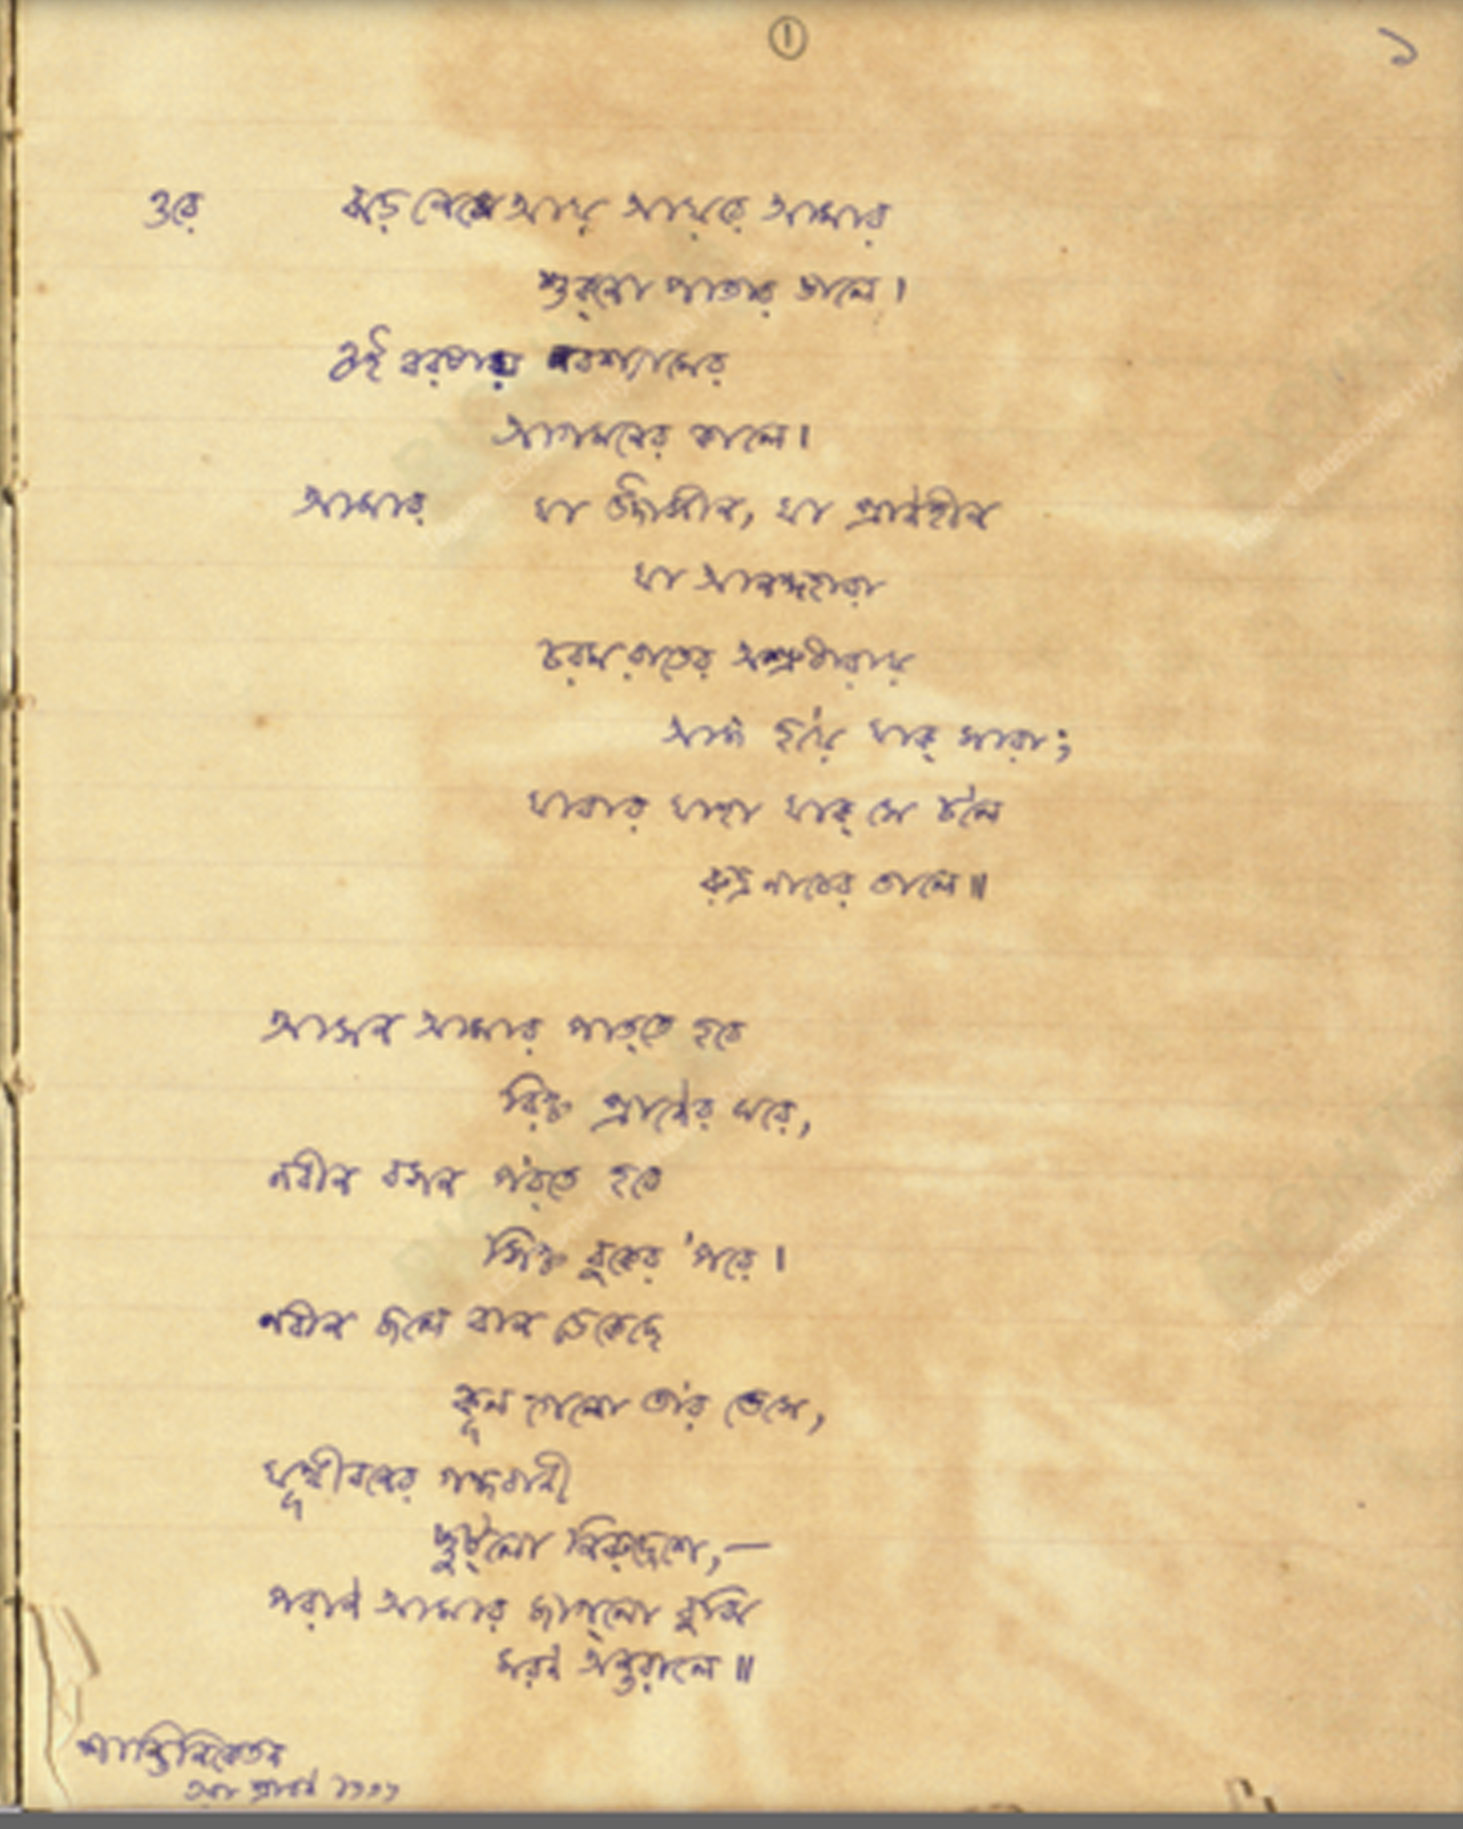 ①
১
ওরে ঝড় নেমে আয় আয়রে আমার
শুক্‌নো পাতার ডালে।
এই বরষায় নবশ্যামের
আগমনের কালে।
আমার যা উদাসীন, যা প্রাণহীন
যা আনন্দহারা
চরম রাতের অশ্রুধারায়
আজ হ'য়ে যাক্‌ সারা;
যাবার যাহা যাক্‌ সে চ'লে
রুদ্র নাচের তালে॥
আসন আমার পাত্‌তে হবে
রিক্ত প্রাণের ঘরে,
নবীন বসন প'র্‌তে হবে
সিক্ত বুকের 'পরে।
নদীর জলে বান ডেকেছে
কূল গেলো তা'র ভেসে,
যূথীবনের গন্ধবাণী
ছুট্‌লো নিরুদ্দেশে,—
পরাণ আমার জাগ্‌লো বুঝি
মরণ অন্তরালে॥
শান্তিনিকেতন
শ্রাবণ